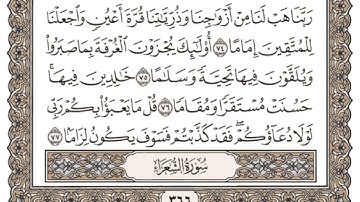 رَبَّنَا هَبْ لَنَا مِنْ أَزْوَاجِنَا وَذُرِّيَّٰتِنَا قُرَّةَ أَعْيُنٍ وَٱجْعَلْنَا
لِلْمُتَّقِينَ إِمَامًا ٧٤ أُو۟لَٰٓئِكَ يُجْزَوْنَ ٱلْغُرْفَةَ بِمَا صَبَرُوا۟
وَيُلَقَّوْنَ فِيهَا تَحِيَّةً وَسَلَٰمًا ٧٥ خَٰلِدِينَ فِيهَا ۚ
حَسُنَتْ مُسْتَقَرًّا وَمُقَامًا ٧٦ قُلْ مَا يَعْبَؤُا۟ بِكُمْ رَبِّى
لَوْلَا دُعَآؤُكُمْ ۖ فَقَدْ كَذَّبْتُمْ فَسَوْفَ يَكُونُ لِزَامًۢا ٧٧
سُورَةُ الشُّعَرَاءِ
٣٦٦